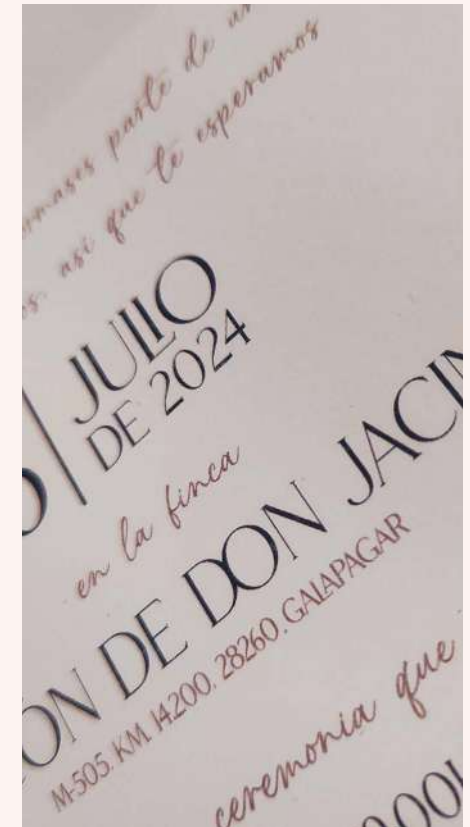 parte de un
os, así que te esperamos
JULIO
DE 2024
en la finca
ÓN DE DON JACIN
M-505. KM. 14200. 28260. GALAPAGAR
ceremonia que